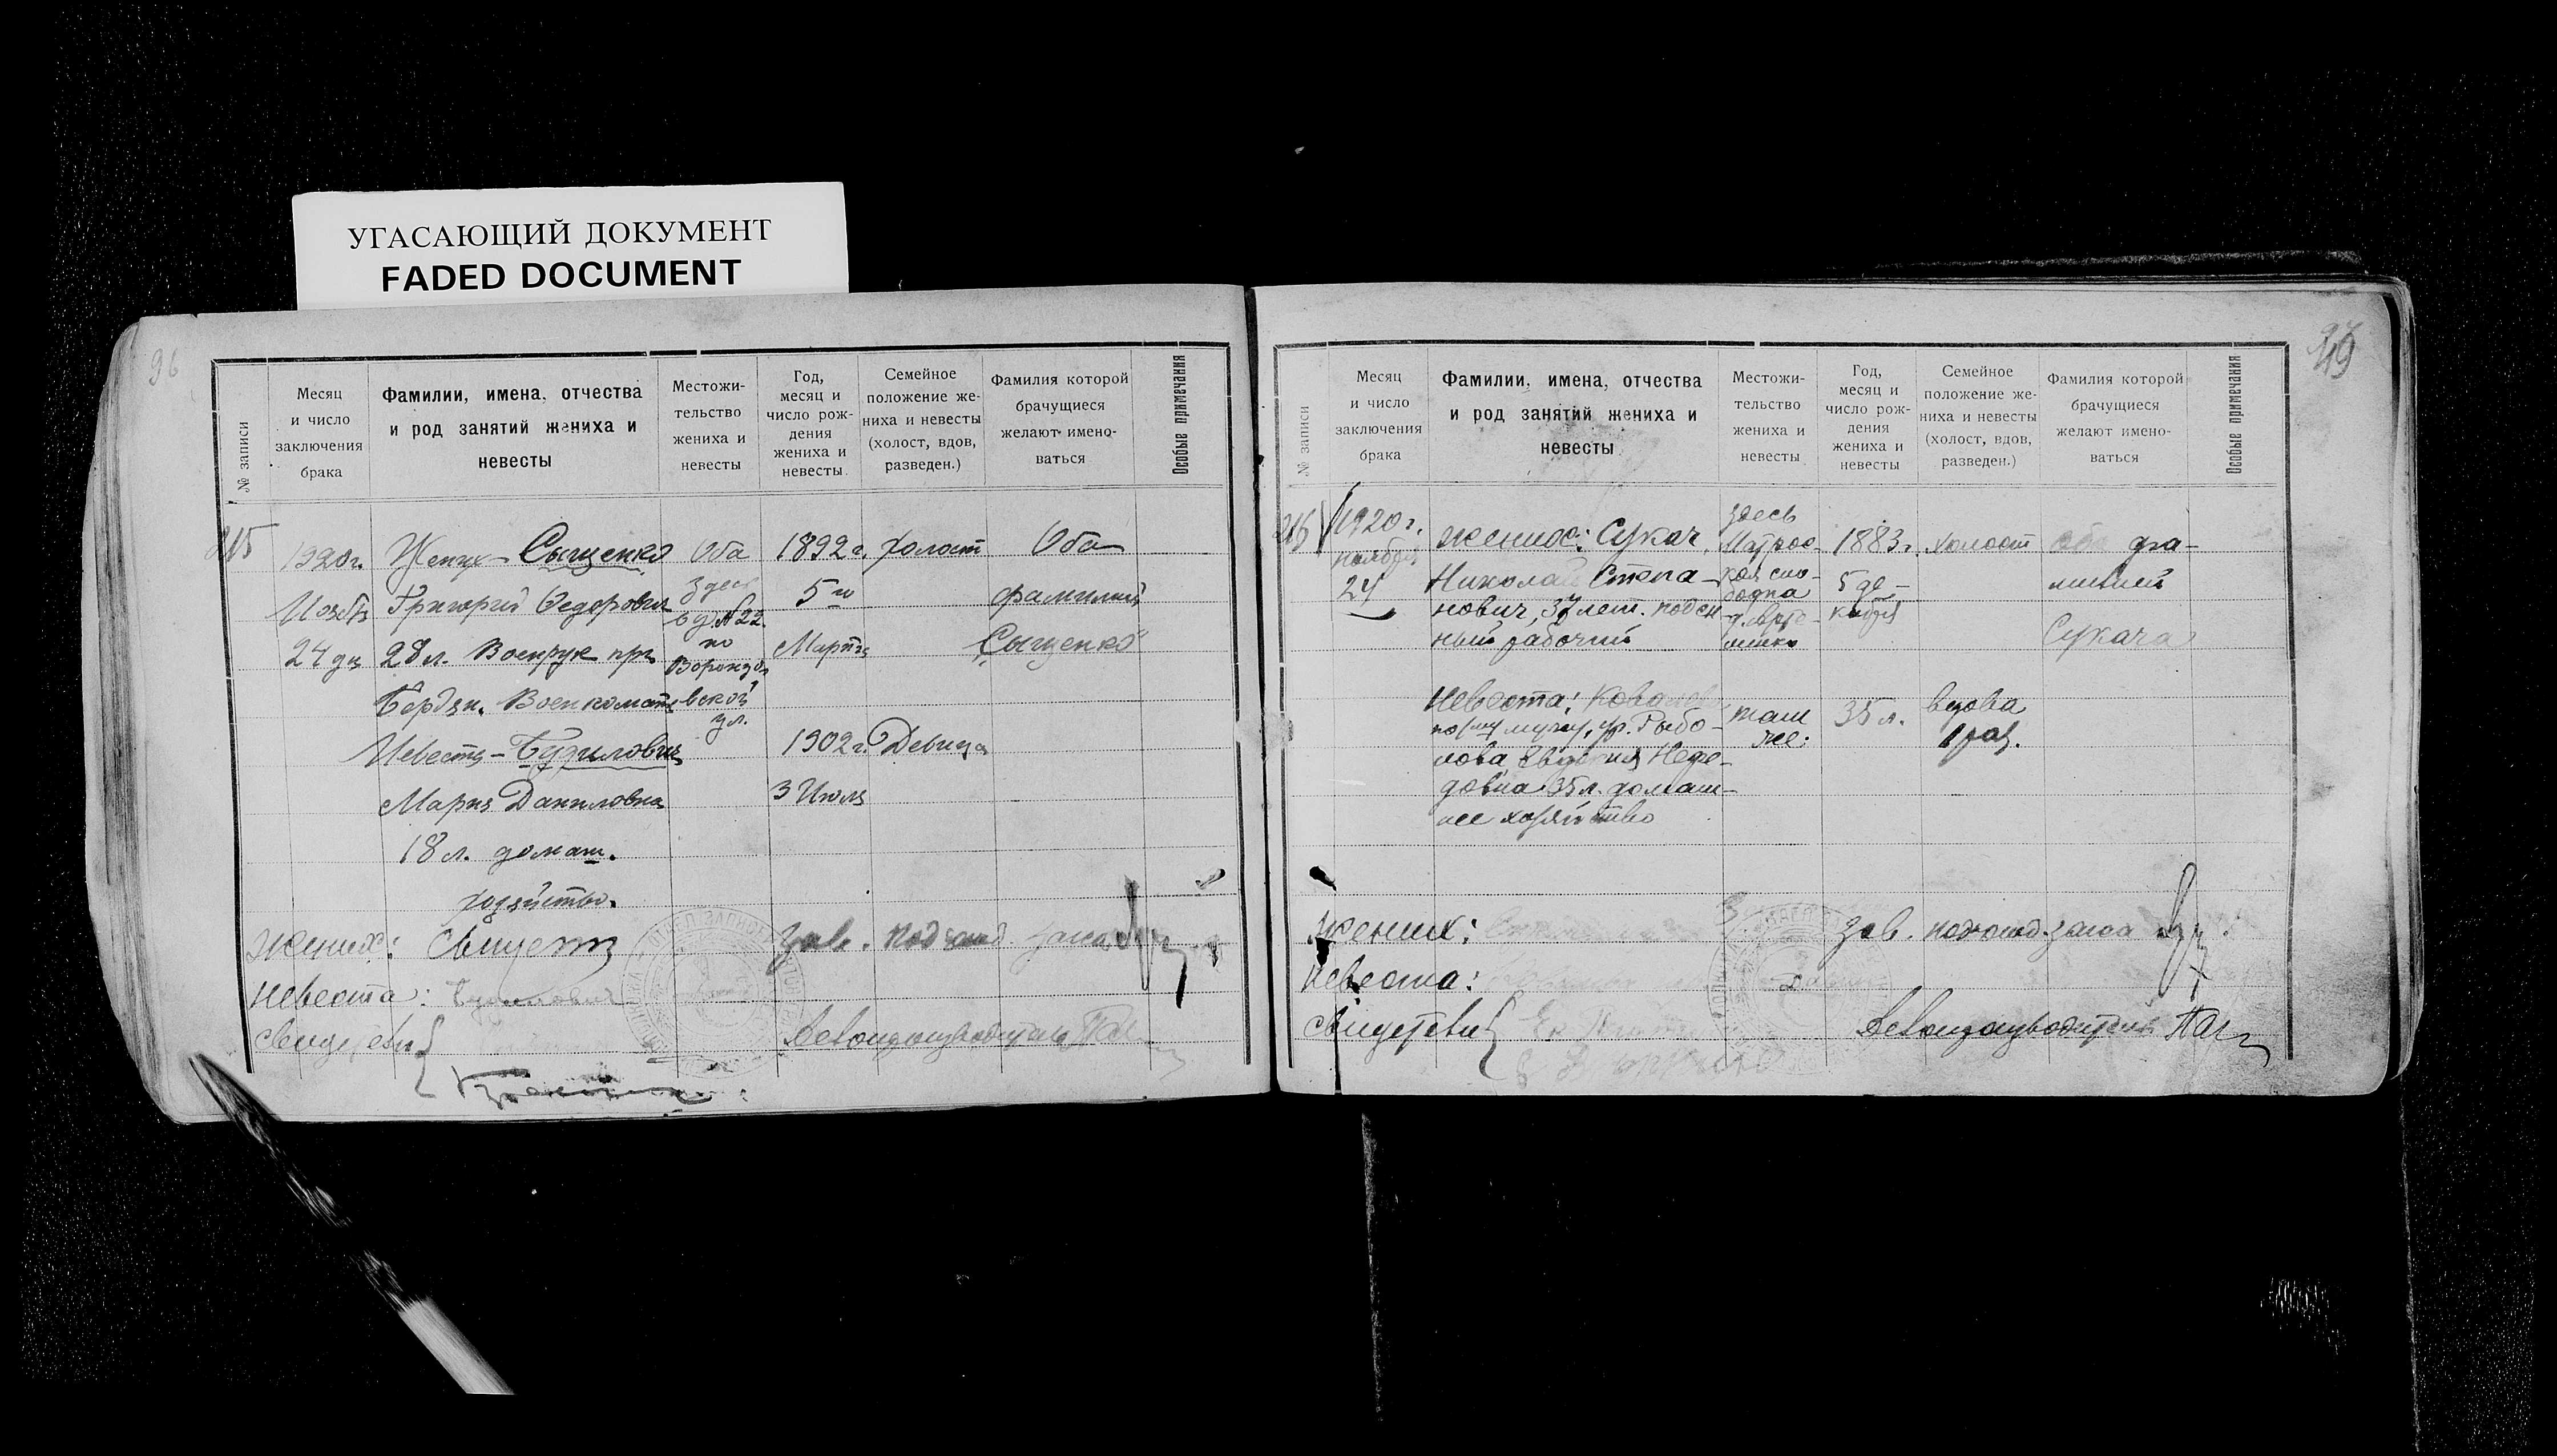 УГАСАЮЩИЙ ДОКУМЕНТ
FADED DOCUMENT
96
№ записи
Месяц
и число
заключения
брака
Фамилии, имена, отчества
и род занятий жениха и
невесты
Местожи-
тельство
жениха и
невесты
Год,
месяц и
число рож-
дения
жениха и
невесты.
Семейное
положение же-
ниха и невесты
(холост, вдов,
разведен.)
Фамилия которой
брачущиеся
желают имено-
ваться
Особые примечания
215
1920г.
Ноября
24 дня
Жених Сыщенко
Григорий Федорович
28 л. Военрук при
Бердян. Военкомате
Невеста - Будилович
Мария Даниловна
18 л. домаш.
хозяйство.
Оба
Здесь
в д. №22
по
Воронцо
вской
ул.
1892г.
5го
Марта
1902г.
3 Июля
холост
Девица
Оба
фамилией
"Сыщенко"
жених:
невеста: Будилович
свидетели
зав. подотд. загса
Делопроизводитель
49
№ записи
Месяц
и число
заключения
брака
Фамилии, имена, отчества
и род занятий жениха и
невесты
Местожи-
тельство
жениха и
невесты
Год,
месяц и
число рож-
дения
жениха и
невесты
Семейное
положение же-
ниха и невесты
(холост, вдов,
разведен.)
Фамилия которой
брачущиеся
желают имено-
ваться
Особые примечания
216
1920 г.
ноября
24
жених: Сукач
Николай Степа-
нович, 37 лет. поден
ный рабочий
Невеста: Ковалева
по мужу, ур. Рыбо-
лова Нефе-
довна 35 л. домаш-
нее хозяйство
здесь
Матрос-
кая сло-
бодка
1883г.
5 де-
кабря
холост
оба фа-
милией
Сукача
там
же.
35 л.
вдова
1 раз.
жених:
невеста:
свидетели
зав. подотд. загса
Делопроизводитель